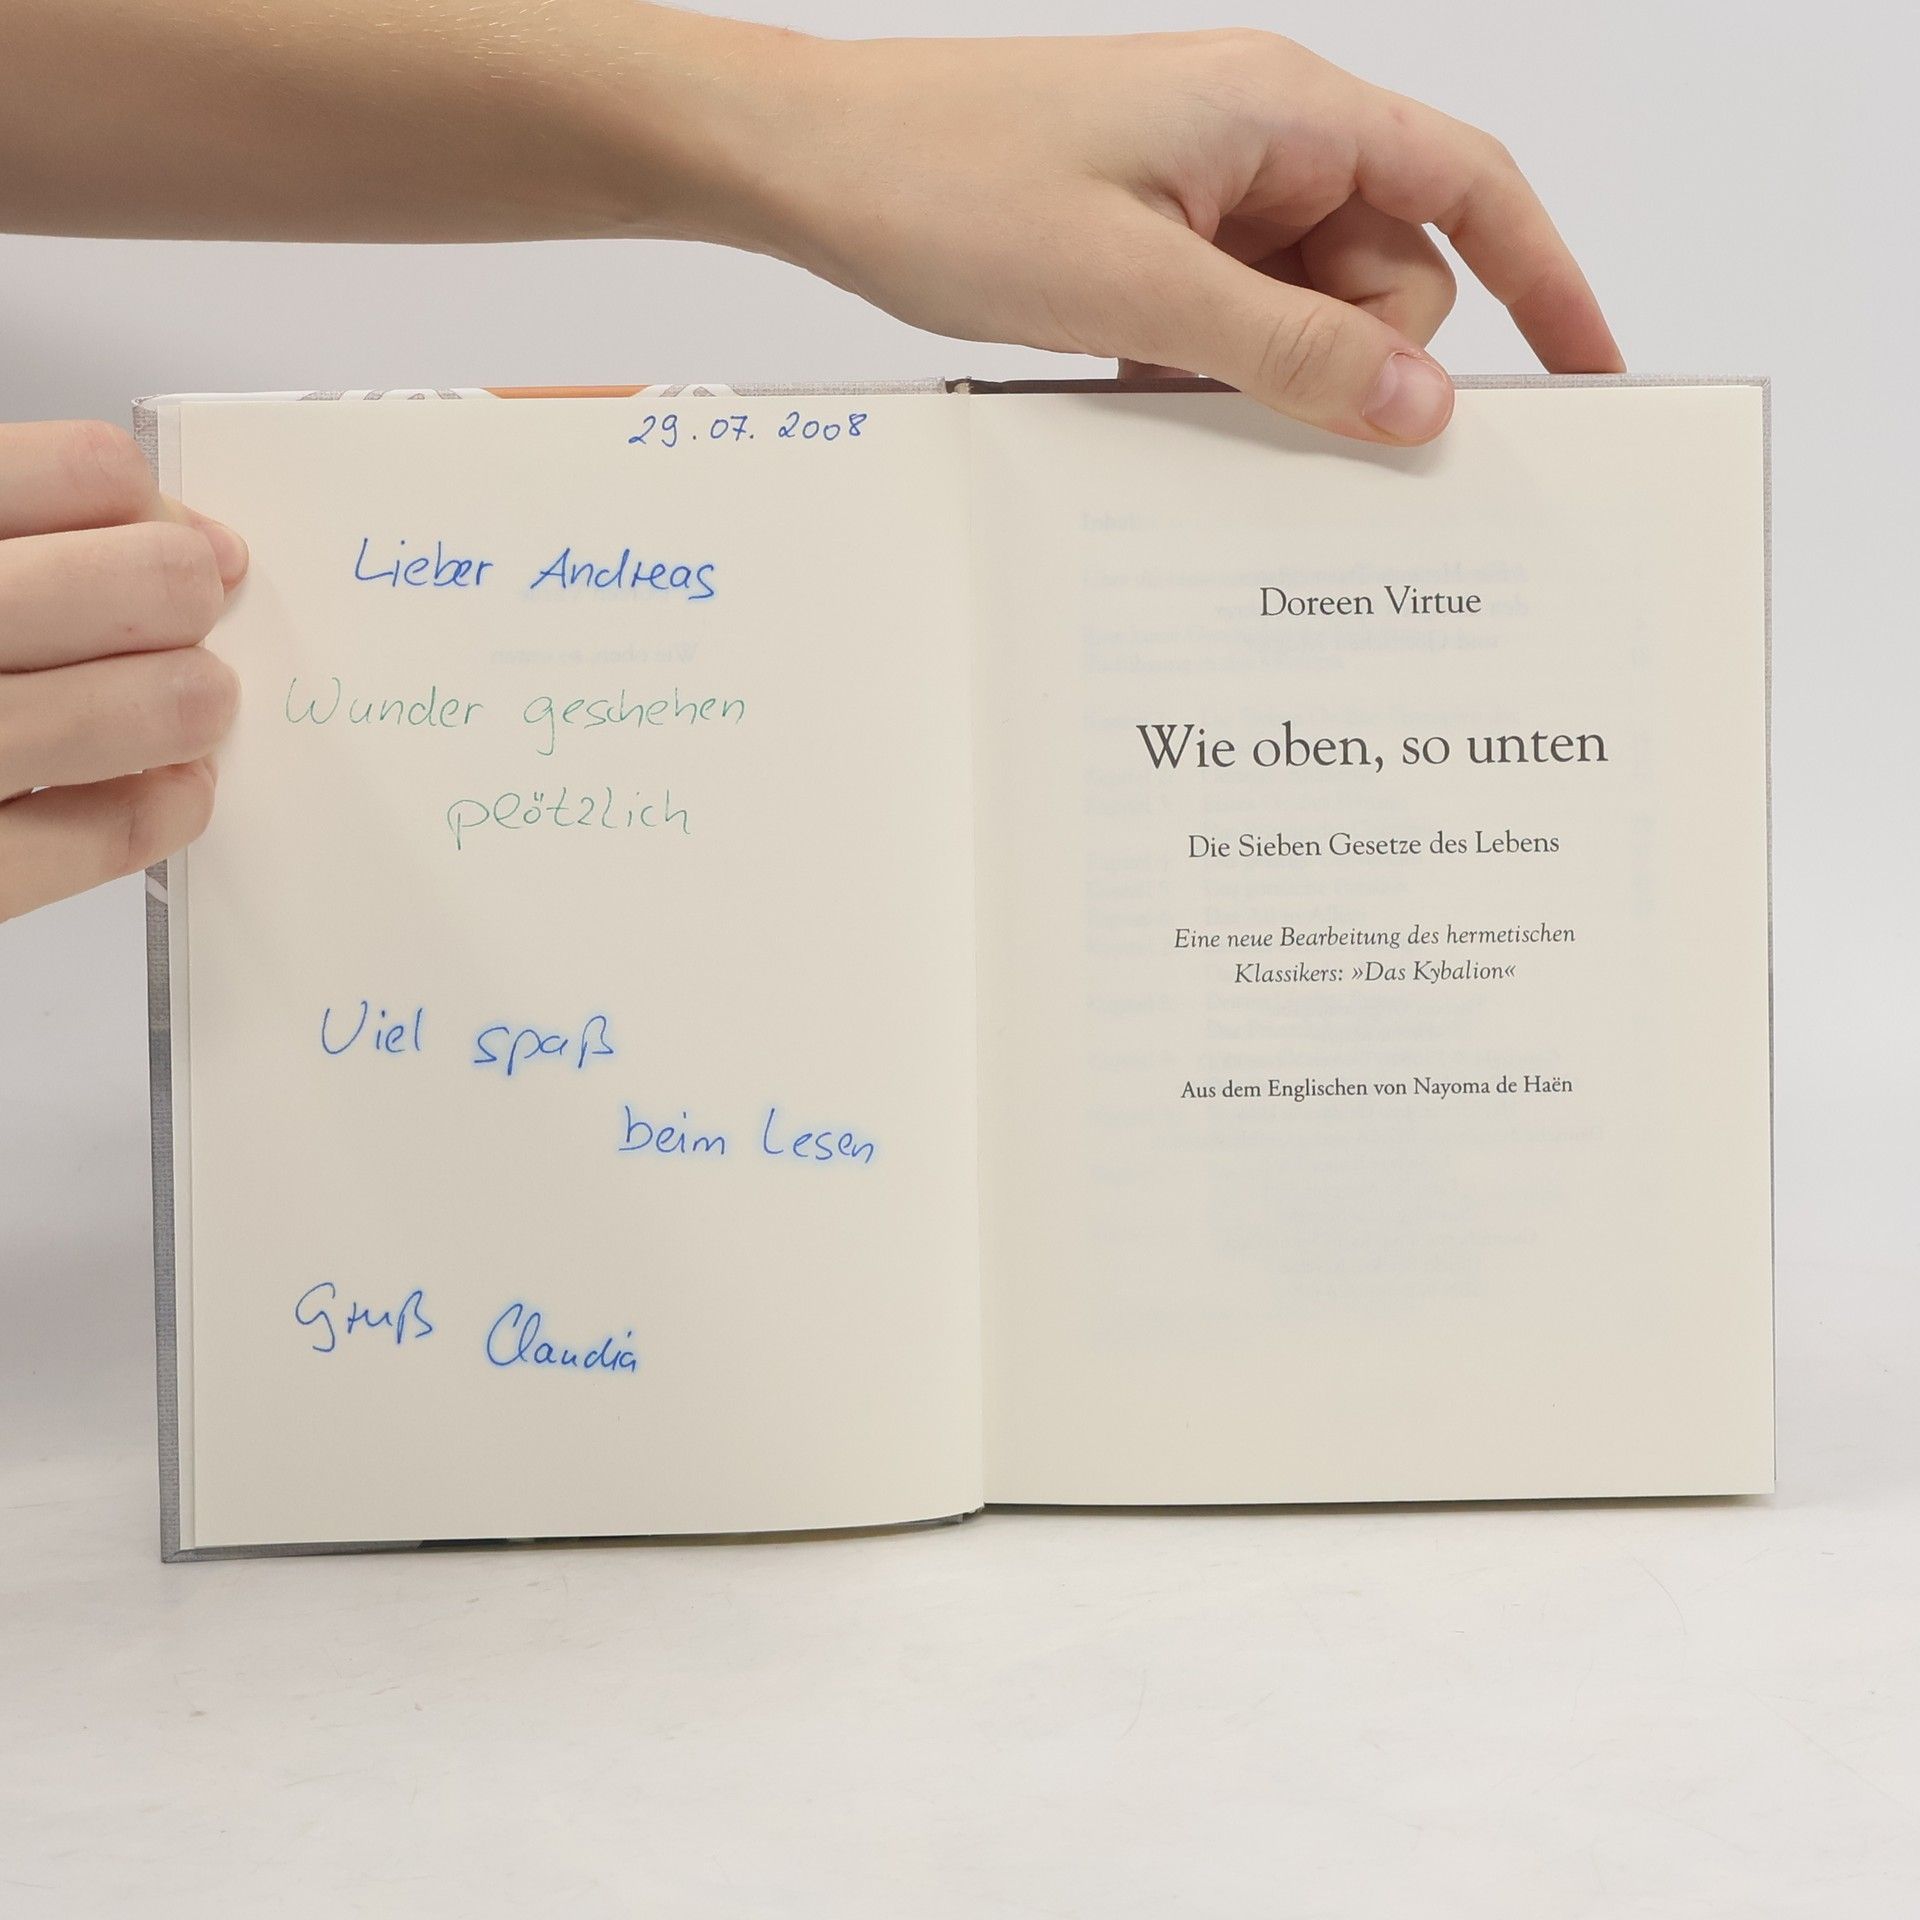 29.07.2008
Lieber Andreas
Wunder geschehen
plötzlich
Viel spaß
beim Lesen
Gruß Claudia
Doreen Virtue
Wie oben, so unten
Die Sieben Gesetze des Lebens
Eine neue Bearbeitung des hermetischen
Klassikers: »Das Kybalion«
Aus dem Englischen von Nayoma de Haën